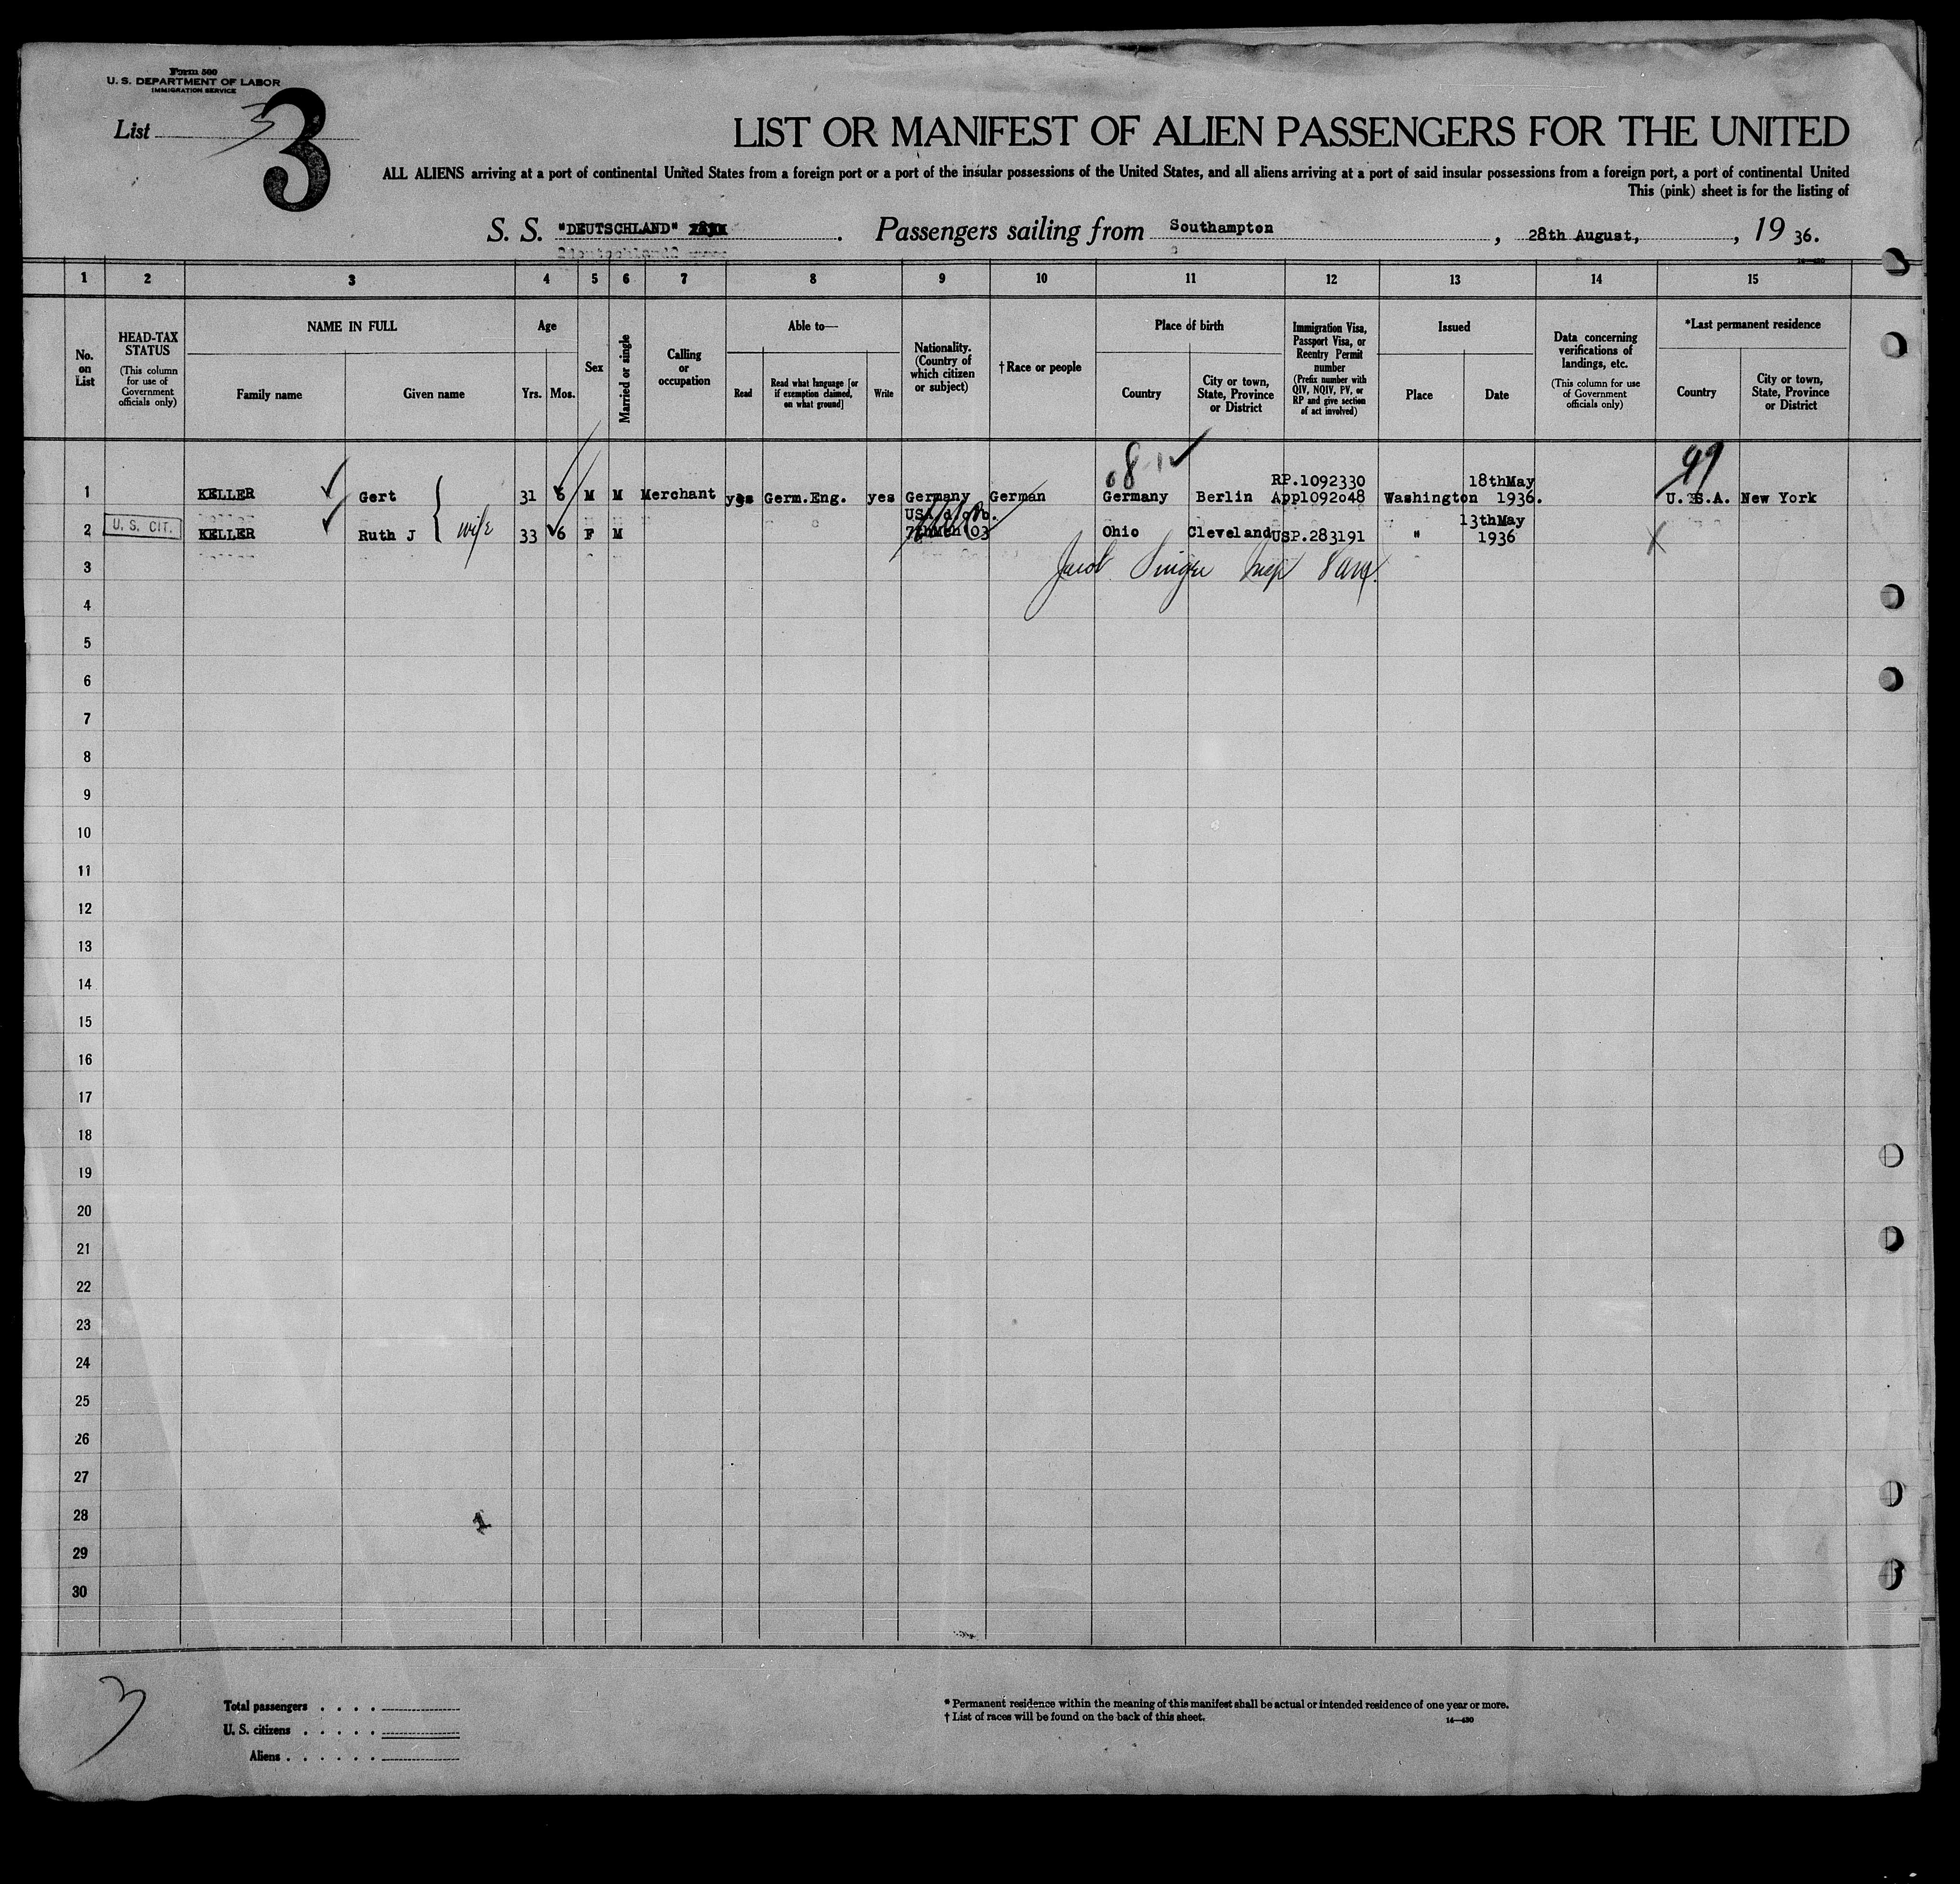 Form 500
U. S. DEPARTMENT OF LABOR
IMMIGRATION SERVICE
List 3
3
LIST OR MANIFEST OF ALIEN PASSENGERS FOR THE UNITED
ALL ALIENS arriving at a port of continental United States from a foreign port or a port of the insular possessions of the United States, and all aliens arriving at a port of said insular possessions from a foreign port, a port of continental United
This (pink) sheet is for the listing of
S. S. "DEUTSCHLAND" . Passengers sailing from Southampton , 28th August, , 19 36.
14—430
1 2 3 4 5 6 7 8 9 10 11 12 13 14 15
No. on List
HEAD-TAX STATUS
(This column for use of Government officials only)
NAME IN FULL
Family name Given name
Age
Yrs. Mos.
Sex
Married or single
Calling or occupation
Able to—
Read
Read what language [or if exemption claimed, on what ground]
Write
Nationality. (Country of which citizen or subject)
† Race or people
Place of birth
Country
City or town, State, Province or District
Immigration Visa, Passport Visa, or Reentry Permit number
(Prefix number with QIV, NQIV, PV, or RP and give section of act involved)
Issued
Place Date
Data concerning verifications of landings, etc.
(This column for use of Government officials only)
*Last permanent residence
Country
City or town, State, Province or District
RP.1092330 18thMay
1 KELLER Gert 31 6 M M Merchant yes Germ.Eng. yes Germany German Germany Berlin App1092o48 Washington 1936. U. S.A. New York
13thMay
2 U. S. CIT. KELLER Ruth J wife 33 6 F M Ohio Cleveland USP.283191 " 1936
3
4
5
6
7
8
9
10
11
12
13
14
15
16
17
18
19
20
21
22
23
24
25
26
27
28
29
30
3
Total passengers . . . .
U. S. citizens . . . . .
Aliens . . . . . .
* Permanent residence within the meaning of this manifest shall be actual or intended residence of one year or more.
† List of races will be found on the back of this sheet.
14—430